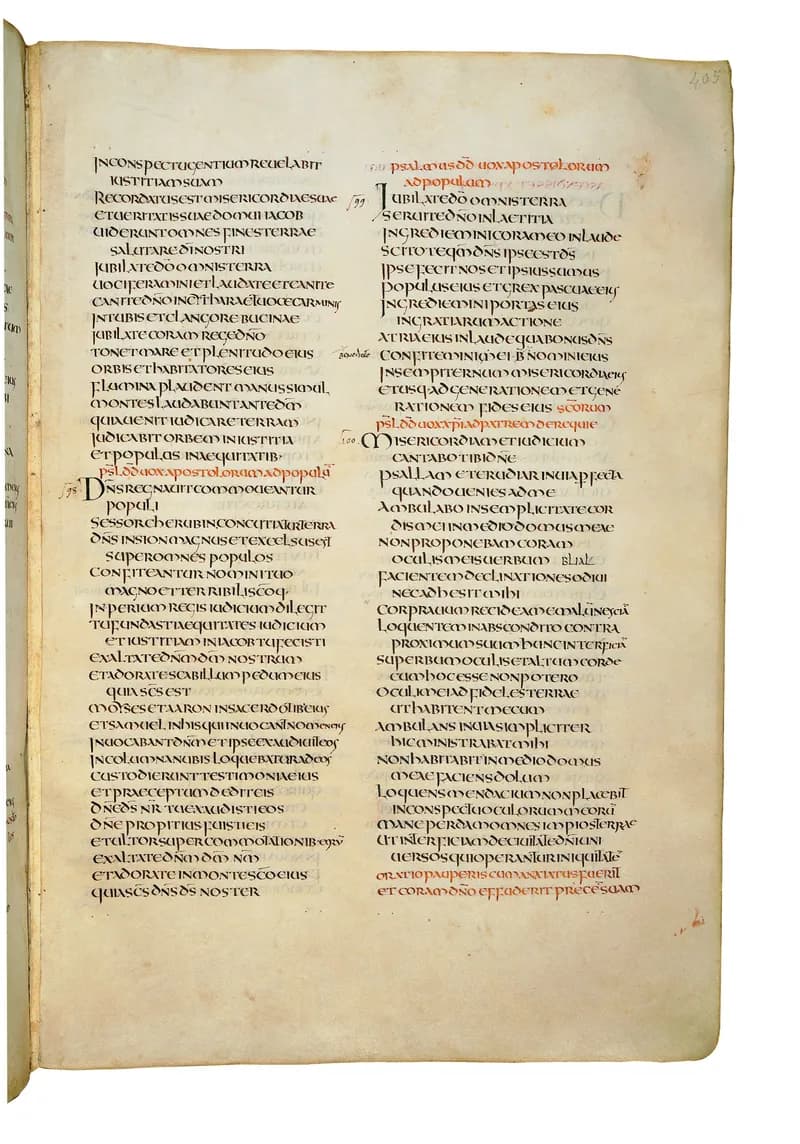 405
IN CONSPECTU GENTIUM REUELABIT
IUSTITIAM SUAM
RECORDATUS EST MISERICORDIAE SUAE
ET UERITATIS SUAE DOMUI IACOB
UIDERUNT OMNES FINES TERRAE
SALUTARE DI NOSTRI
IUBILATE DŌ OMNIS TERRA
UOCIFERAMINI ET LAUDATE ET CANITE
CANITE DÑO IN CITHARA ET UOCE CARMINIS
IN TUBIS ET CLANGORE BUCINAE
IUBILATE CORAM REGE DÑO
TONET MARE ET PLENITUDO EIUS
ORBIS ET HABITATORES EIUS
FLUMINA PLAUDENT MANU SIMUL
MONTES LAUDABUNT ANTE DÑM
QUIA UENIT IUDICARE TERRAM
IUDICABIT ORBEM IN IUSTITIA
ET POPULAS IN AEQUITATIB·
PSL DD UOX APOSTOLORUM AD POPULŪ
98 DÑS REGNAUIT COMMOUEANTUR
POPULI
SESSOR CHERUBIN CONCUTIATUR TERRA
DÑS IN SION MAGNUS ET EXCELSUS EST
SUPER OMNES POPULOS
CONFITEANTUR NOMINI TUO
MAGNO ET TERRIBILI SCŌQ·
INPERIUM REGIS IUDICIUM DILEGIT
TU FUNDASTI AEQUITATES IUDICIUM
ET IUSTITIAM IN IACOB TU FECISTI
EXALTATE DÑM DM NOSTRUM
ET ADORATE SCABILLUM PEDUM EIUS
QUIA SCS EST
MOYSES ET AARON IN SACERDOTIB· EIUS
ET SAMUEL IN HIS QUI INUOCANT NOMEN EIUS
INUOCABANT DÑM ET IPSE EXAUDIUIT EOS
IN COLUMNA NUBIS LOQUEBATUR AD EOS
CUSTODIERUNT TESTIMONIA EIUS
ET PRAECEPTUM DEDIT EIS
DÑE DS NR TU EXAUDISTI EOS
DÑE PROPITIUS FUISTI EIS
ET ULTOR SUPER COMMOTATIONIB· EORŪ
EXALTATE DÑM DM NM
ET ADORATE IN MONTE SCŌ EIUS
QUIA SCS DÑS DS NOSTER
PSALMUS DD UOX APOSTOLORUM
AD POPULUM
99 IUBILATE DŌ OMNIS TERRA
SERUITE DÑO IN LAETITIA
INGREDIEMINI CORAM EO IN LAUDE
SCITOTE QM DÑS IPSE EST DS
IPSE FECIT NOS ET IPSIUS SUMUS
POPULUS EIUS ET GREX PASCUAE EIUS
INGREDIEMINI PORTAS EIUS
IN GRATIARUM ACTIONE
ATRIA EIUS IN LAUDE QUA BONUS DÑS
benedicite CONFITEMINI EI B NOMINI EIUS
IN SEMPITERNUM MISERICORDIA EIUS
ET USQ· AD GENERATIONEM ET GENE
RATIONEM FIDES EIUS SCŌRUM
PSL DD UOX XPI AD PATREM DE REQUIE
100 MISERICORDIAM ET IUDICIUM
CANTABO TIBI DÑE
PSALLAM ET ERUDIAR IN UIA PFECTA
QUANDO UENIES AD ME
AMBULABO IN SEMPLICITATE COR
DIS MEI IN MEDIO DOMUS MEAE
NON PROPONEBAM CORAM
OCULIS MEIS UERBUM BLIAL
FACIENTEM DECLINATIONES ODIUI
NEC ADHESIT MIHI
COR PRAUUM RECIDE A ME MALŪ NESCIĀ
LOQUENTEM IN ABSCONDITO CONTRA
PROXIMUM SUUM HUNC INTERFICIĀ
SUPERBUM OCULIS ET ALTUM CORDE
CUM HOC ESSE NON POTERO
OCULI MEI AD FIDELES TERRAE
UT HABITENT MECUM
AMBULANS IN UIA SIMPLICITER
HIC MINISTRABAT MIHI
NON HABITABIT IN MEDIO DOMUS
MEAE FACIENS DOLUM
LOQUENS MENDACIUM NON PLACEBIT
IN CONSPECTU OCULORUM MEORŪ
MANE PERDAM OMNES IMPIOS TERRAE
UT INTERFICIAM DE CIUITATE DÑI UNI
UERSOS QUI OPERANTUR INIQUITATĒ
ORATIO PAUPERIS CUM ANXIATUS FUERIT
ET CORAM DÑO EFFUDERIT PRECĒ SUAM